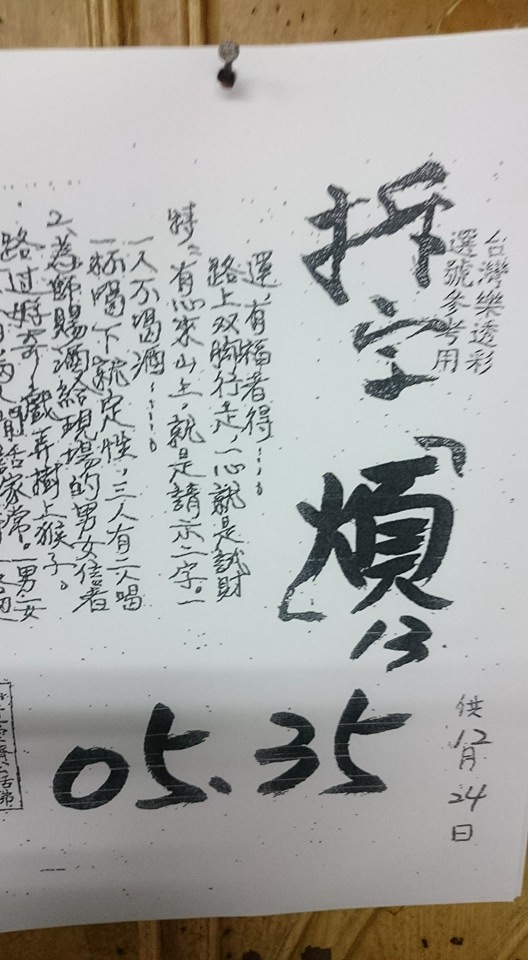 台灣樂透彩
選號參考用
拆字「煩」13
供12月24日
05.35
還,有福者得……。
路上双腳行走,一心就是試財
特:有心來山上,就是請示二字。一
一人不喝酒……。
一杯喝下就定性,三人有二人喝
2、為師賜酒給現場的男女信者
路过好奇,戲弄樹上猴子。
話家常。一男一女